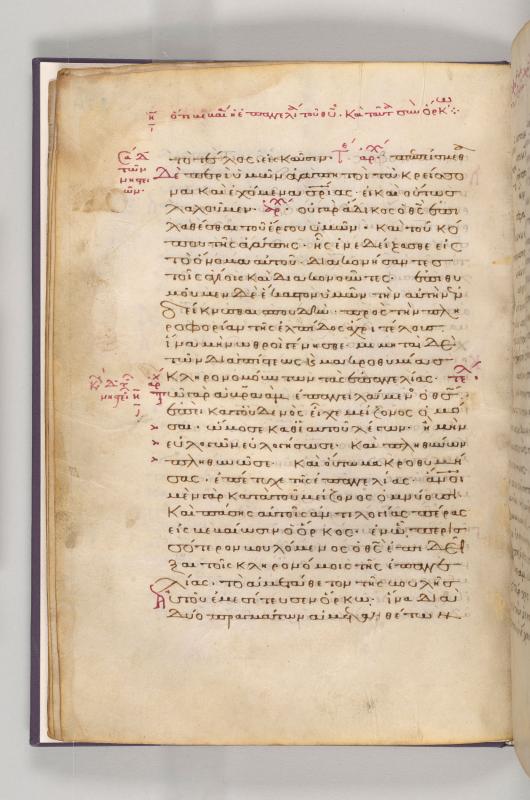 ὅτι βεβαία ἡ ἐπαγγελία τοῦ θυ̅· καὶ ταῦτα σὺν ὅρκω
τὸ τέλος εἰς καῦσιν· τε αρχ πεπείσμεθα
Δὲ περὶ ὑμῶν ἀγαπητοὶ τὰ κρείσσο
να καὶ ἐχόμενα σρ̅ίας· εἰ καὶ οὕτως
λαλοῦμεν· αρχ οὐ γὰρ ἄδικος ὁ θς̅ ἐπι
λαθέσθαι τοῦ ἔργου ὑμῶν· καὶ τοῦ κό
που τῆς ἀγάπης· ἧς ἐνεδείξασθε εἰς
τὸ ὄνομα αὐτοῦ· διακονήσαντες
τοῖς ἁγίοις καὶ διακονοῦντες· ἐπιθυ
μοῦμεν δὲ ἕκαστον ὑμῶν τὴν αὐτὴν ἐν
δείκνυσθαι σπουδὴν· πρὸς τὴν πλη
ροφορίαν τῆς ἐλπίδος ἄχρι τέλους
ἵνα μὴ νωθροὶ γένησθε· μιμηταὶ δὲ
τῶν διὰ πίστεως καὶ μακροθυμίας
κληρονομούντων τὰς ἐπαγγελίας· τε
τῶ γὰρ ἀβραὰμ ἐπαγγειλάμενος ὁ θς̅
ἐπεὶ κατ οὐδενὸς εἶχε μείζονος ὀμό
σαι· ὤμοσε καθ ἑαυτοῦ λέγων· ἦ μὴν
εὐλογῶν εὐλογήσω σε· καὶ πληθύνων
πληθυνῶ σε· καὶ οὕτω μακροθυμή
σας· ἐπέτυχε τῆς ἐπαγγελίας· ἄν̅οι
μὲν γὰρ κατὰ τοῦ μείζονος ὀμνύουσι
καὶ πάσης αὐτοῖς ἀντιλογίας πέρας
εἰς βεβαίωσιν ὁ ὅρκος· ἐν ὧ περισ
σότερον βουλόμενος ὁ θς̅ ἐπιδεῖ
ξαι τοῖς κληρονόμοις τῆς ἐπαγγε
λίας· τὸ ἀμετάθετον τῆς βουλῆς
Αὐτοῦ ἐμεσίτευσεν ὅρκω· ἵνα διὰ
δύο πραγμάτων ἀμεταθέτων